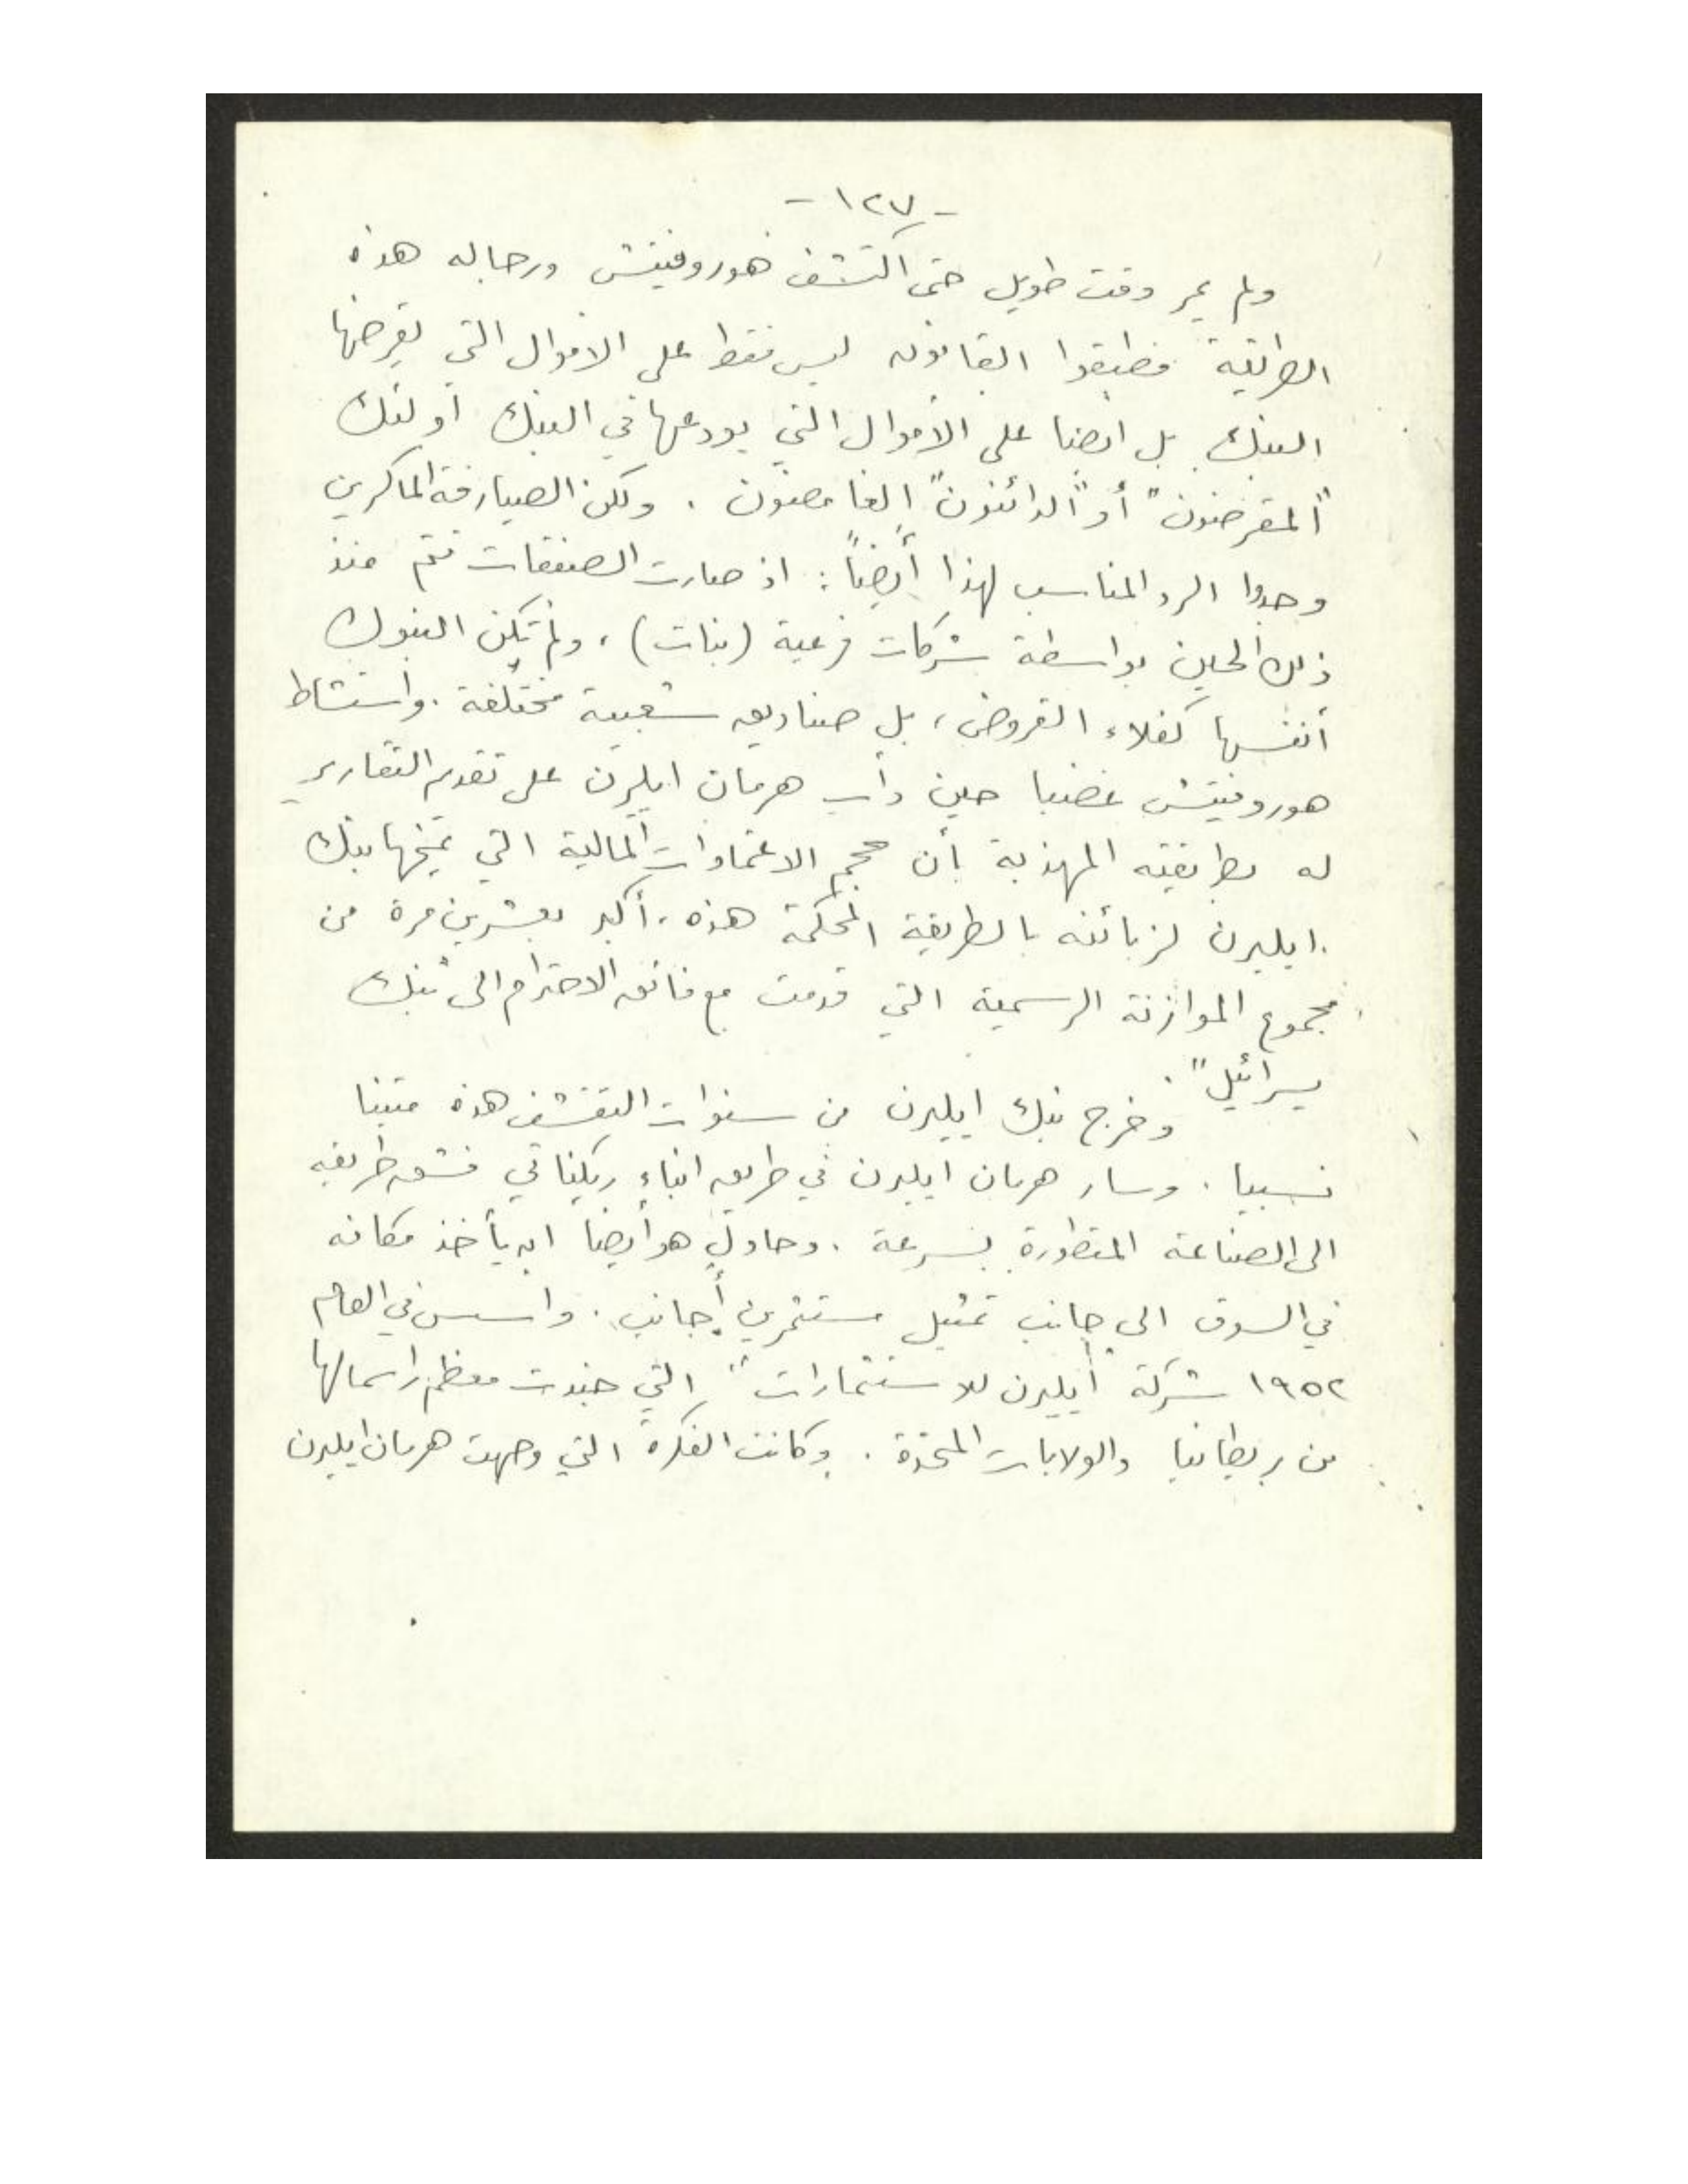 - ١٢٧ -
ولم يمر وقت طويل حتى اكتشف هوروفيتش ورجاله هذه
الطريقة فطبقوا القانون ليس فقط على الاموال التي يقرضها
البنك بل ايضا على الأموال التي يودعها في البنك أولئك
"المقرضون" أو "الدائنون" الغامضون . ولكن الصيارفة الماكرين
وجدوا الرد المناسب لهذا أيضاً : اذ صارت الصفقات تتم منذ
ذلك الحين بواسطة شركات فرعية (بنات) ، ولم تكن البنوك
أنفسها كفلاء القروض ، بل صناديق شعبية مختلفة . واستشاط
هوروفيتش غضبا حين دأب هرمان ايليرن على تقديم التقارير
له بطريقته المهذبة بأن حجم الاعتمادات المالية التي يمنحها بنك
ايليرن لزبائنه بالطريقة المحكمة هذه ، أكبر بعشرين مرة من
مجموع الموازنة الرسمية التي قدمت مع فائق الاحترام الى "بنك
يسرائيل" .
وخرج بنك ايليرن من سنوات التقشف هذه متينا
نسبيا . وسار هرمان ايليرن في طريق ابناء ريكناتي فشق طريقه
الى الصناعة المتطورة بسرعة . وحاول هو أيضا ان يأخذ مكانه
في السوق الى جانب تمثيل مستثمرين أجانب . واسس في العام
١٩٥٢ شركة "ايليرن للاستثمارات" التي جندت معظم راسمالها
من بريطانيا والولايات المتحدة . وكانت الفكرة التي وجهت هرمان ايليرن